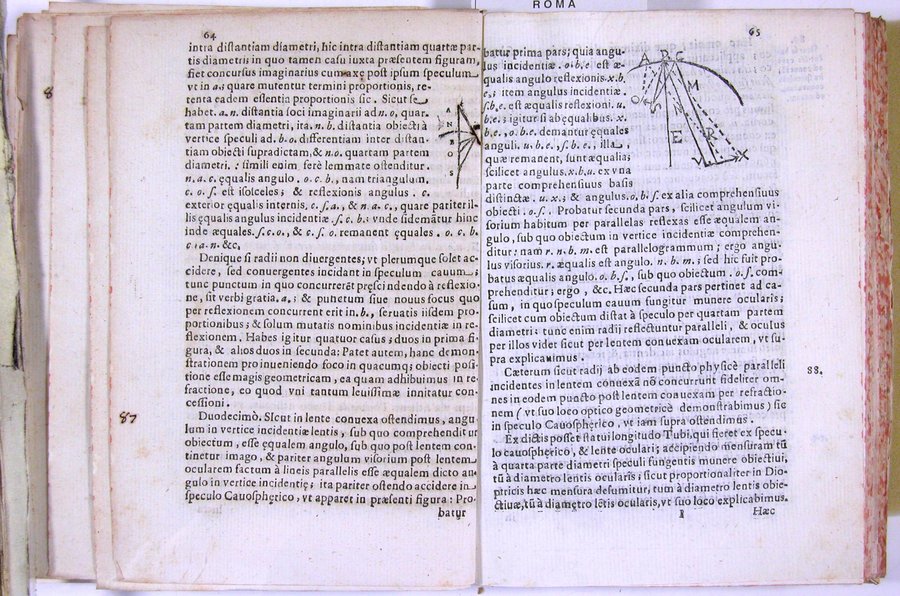 ROMA
64
intra distantiam diametri, hic intra distantiam quartæ par-
tis diametri: in quo tamen casu iuxta præsentem figuram,
fiet concursus imaginarius cum axe post ipsum speculum
vt in a.; quare mutentur termini proportionis, re-
tenta eadem essentia proportionis sic. Sicut se
habet. a.n. distantia foci imaginarii ad n.o, quar-
tam partem diametri, ita. n.b. distantia obiecti à
vertice speculi ad. b.o. differentiam inter distan-
tiam obiecti supradictam, & n.o. quartam partem
diametri. : simili enim ferè lemmate ostenditur.
n.a.c. equalis angulo. o.c.b., nam triangulum.
c.o.s. est isosceles; & reflexionis angulus . c.
exterior equalis internis. c.s.a., & n.a.c., quare pariter il-
lis ęqualis angulus incidentiæ .s.c.b.; vnde si demātur hinc
inde æquales. s.c.o., & c.s.o. remanent ęquales . o.c.b.
c.a.n. &c,
Denique si radii non diuergentes; vt plerumque solet ac-
cidere, sed conuergentes incidant in speculum cauum;
tunc punctum in quo concurrerēt pręscindendo à reflexio-
ne, sit verbi gratia. a.; & punctum siue nouus focus quo
per reflexionem concurrent erit in. b., seruatis iisdem pro-
portionibus; & solum mutatis nominibus incidentiæ in re-
flexionem. Habes igitur quatuor casus; duos in prima fi-
gura, & alios duos in secunda: Patet autem, hanc demon-
strationem pro inueniendo foco in quacumq; obiecti posi-
tione esse magis geometricam, ea quam adhibuimus in re-
fractione, eo quod vni tantum leuissimæ innitatur con-
cessioni.
87
Duodecimò. SIcut in lente conuexa ostendimus, angu-
lum in vertice incidentiæ lentis, sub quo comprehenditur
obiectum, esse equalem angulo, sub quo post lentem con-
tinetur imago, & pariter angulum visorium post lentem
ocularem factum à lineis parallelis esse æqualem dicto an-
gulo in vertice incidentię; ita pariter ostendo accidere in
speculo Cauosphęrico, vt apparet in præsenti figura: Pro-
batur
65
batur prima pars; quia angu-
lus incidentiæ . o.b.e est æ-
qualis angulo reflexionis. x.b.
e.; item angulus incidentiæ
.s.b.e. est æqualis reflexioni. u.
b.e.; igitur si abęqualibus. x.
b.e., o.b.e. demantur ęquales
anguli. u.b.e., s.b.e., illa,
quæ remanent, sunt æqualia;
scilicet angulus. x.b.u. ex vna
parte comprehensiuus basis
distinctæ . u.x.; & angulus. o.b.s. ex alia comprehensiuus
obiecti . o.s.. Probatur secunda pars, scilicet angulum vi-
sorium habitum per parallelas reflexas esse æqualem an-
gulo, sub quo obiectum in vertice incidentiæ comprehen-
ditur: nam r. n. b. m. est parallelogrammum; ergo angu-
lus visorius. r. æqualis est angulo. n. b. m.; sed hic fuit pro-
batus æqualis angulo. o.b.s., sub quo obiectum . o.s. com-
prehenditur; ergo , &c. Hæc secunda pars pertinet ad ca-
sum, in quo speculum cauum fungitur munere ocularis;
scilicet cum obiectum distat à speculo per quartam partem
diametri: tunc enim radij reflectuntur paralleli, & oculus
per illos videt sicut per lentem conuexam ocularem, vt su-
pra explicauimus .
88.
Cæterum sicut radij ab eodem puncto physicè paralleli
incidentes in lentem conuexā nō concurrunt fideliter om-
nes in eodem puncto post lentem conuexam per refractio-
nem (vt suo loco optico geometricè demonstrabimus) sic
in speculo Cauosphęrico, vt iam supra ostendimus.
Ex dictis posset statui longitudo Tubi, qui fieret ex specu-
lo cauosphęrico, & lente oculari; accipiendo mensuram tū
à quarta parte diametri speculi fungentis munere obiectiui,
tū à diametro lentis ocularis; sicut proportionaliter in Dio-
ptricis hæc mensura desumitur, tum à diametro lentis obie-
ctiuæ, tū à diametro lētis ocularis, vt suo loco explicabimus.
I Hæc